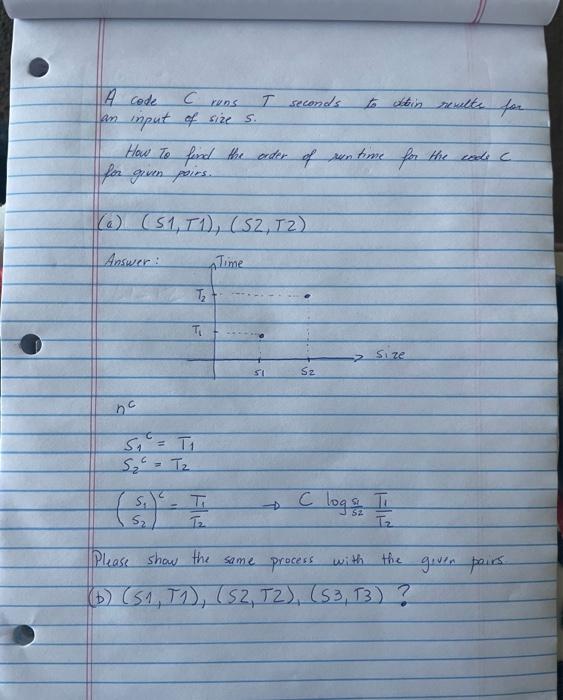 A code C runs T seconds to obtain results for
an input of size S.
How To find the order of run time for the code C
for given pairs.
(a) (S1, T1), (S2, T2)
Answer:
Time
T₂
T₁
size
S1 S2
n^c
S₁^c = T₁
S₂^c = T₂
(S₁/S₂)^c = T₁/T₂ → C log_{S1/S2} T₁/T₂
Please show the same process with the given pairs
(b) (S1, T1), (S2, T2), (S3, T3) ?